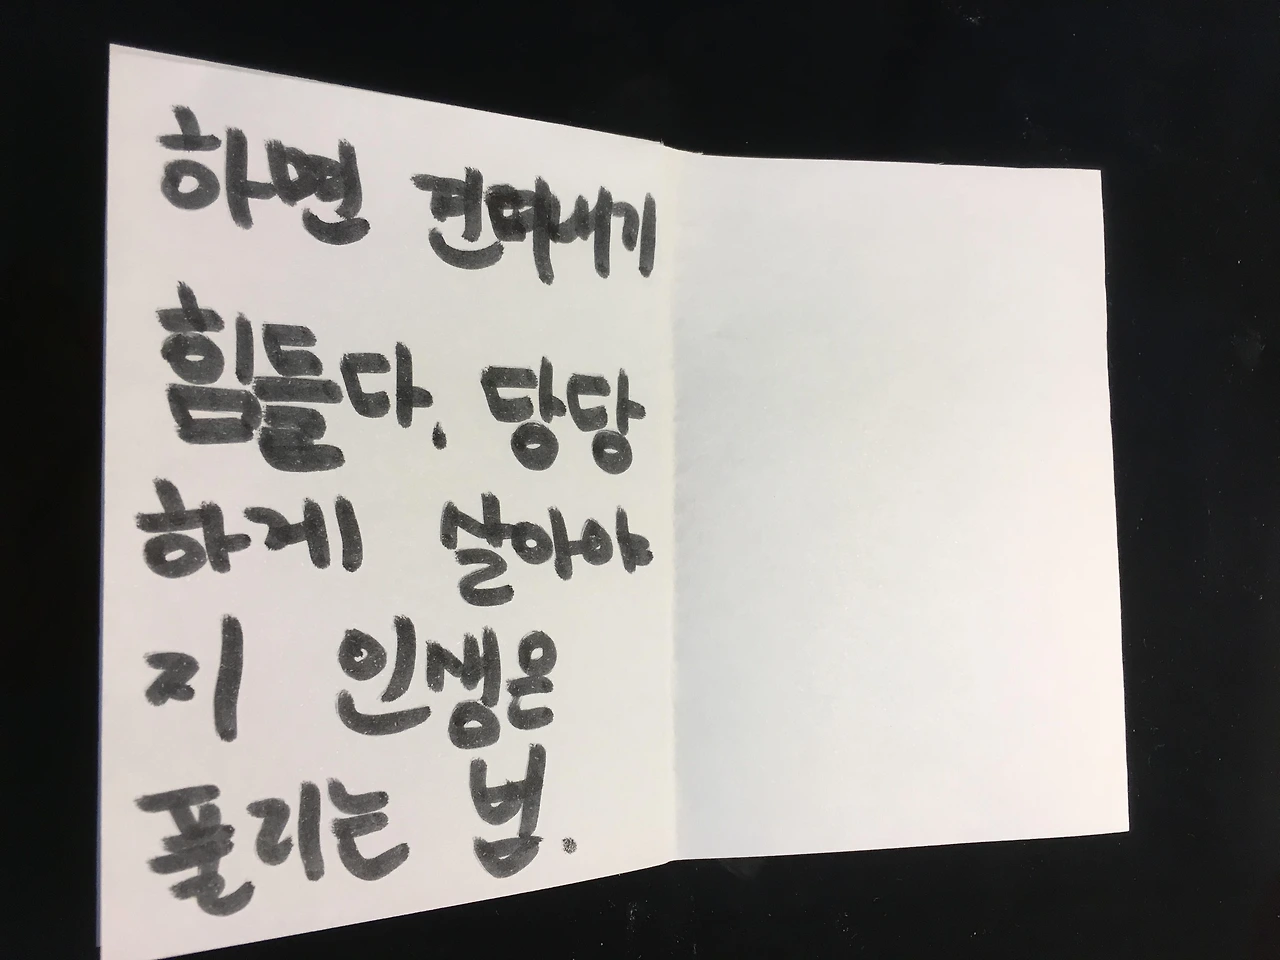 하면 견뎌내기
힘들다. 당당
하게 살아야
지 인생은
풀리는 법.